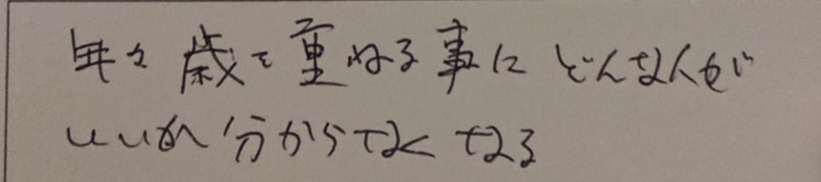 年々歳を重ねる事にどんな人が
いいか分からなくなる